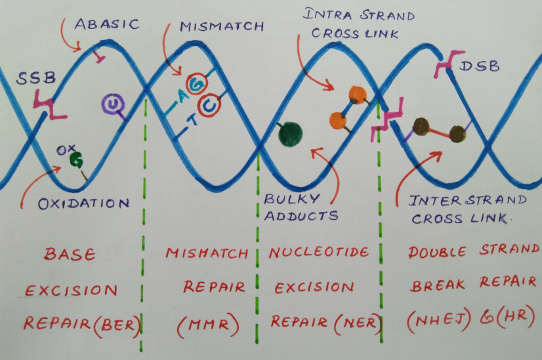 ABASIC
MISMATCH
INTRA STRAND
CROSS LINK
SSB
DSB
U
A G
T C
OX
G
OXIDATION
BULKY
ADDUCTS
INTER STRAND
CROSS LINK.
BASE
EXCISION
REPAIR (BER)
MISMATCH
REPAIR
(MMR)
NUCLEOTIDE
EXCISION
REPAIR (NER)
DOUBLE STRAND
BREAK REPAIR
(NHEJ) & (HR)